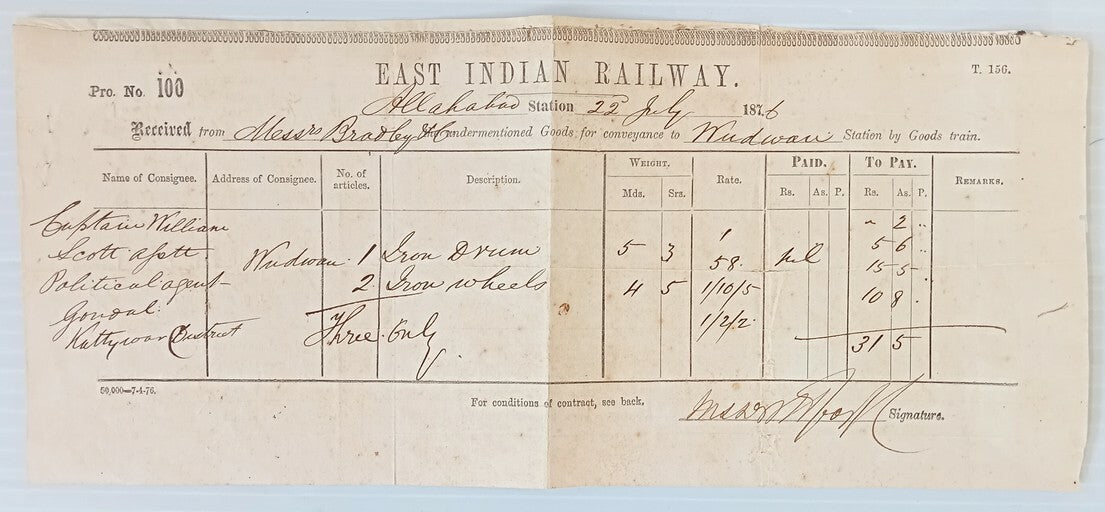 EAST INDIAN RAILWAY.
T. 156.
Pro. No. 100
Allahabad Station 22d July 1876
Received from Messrs Bradley & Co undermentioned Goods for conveyance to Wudwan Station by Goods train.
Name of Consignee. Address of Consignee. No. of articles. Description. WEIGHT. Rate. PAID. TO PAY. REMARKS.
Mds. Srs. Rs. As. P. Rs. As. P.
Captain William 1 " 2 "
Scott asstt. Wudwan 1 Iron Drum 5 3 58 nil 5 6 "
Political agent 2 Iron wheels 4 5 1/10/5 15 5
Gondal 1/2/2 10 8
Kattywar District Three only 31 5
50,000—7-4-76.
For conditions of contract, see back.
Signature.